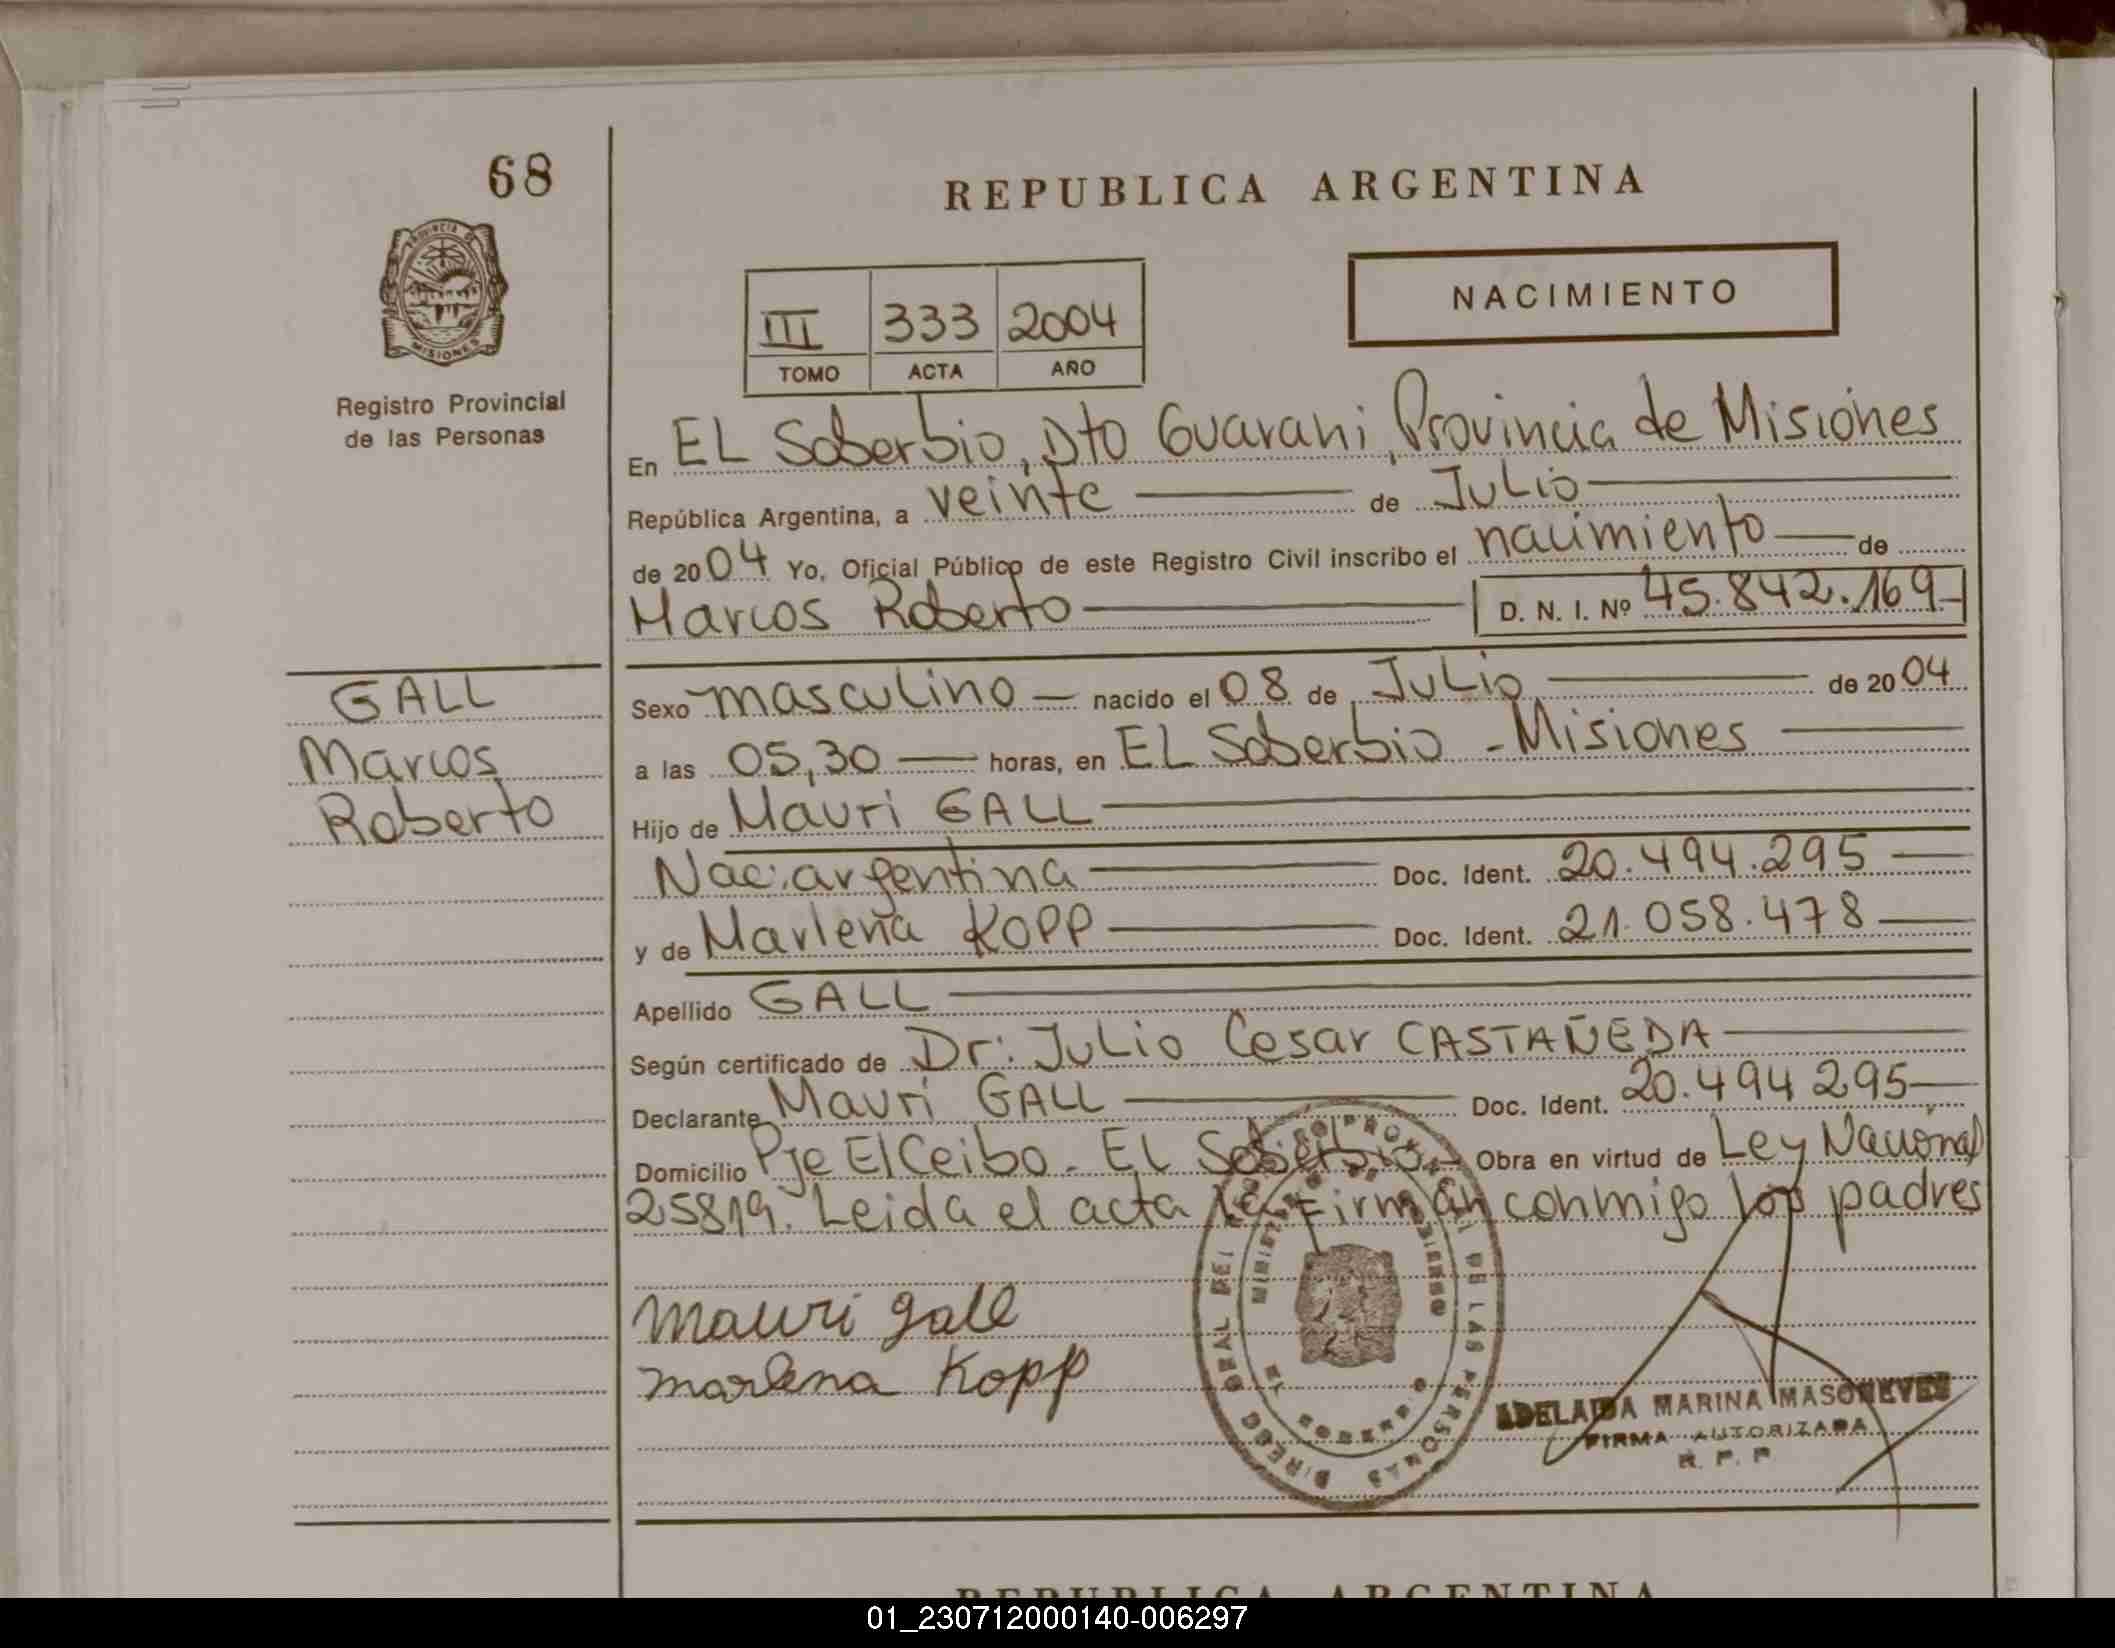 68
REPUBLICA ARGENTINA
PROVINCIA DE
MISIONES
Registro Provincial
de las Personas
NACIMIENTO
III 333 2004
TOMO ACTA AÑO
En EL Soberbio, Dto Guarani, Provincia de Misiones
República Argentina, a veinte de Julio
de 2004 Yo, Oficial Público de este Registro Civil inscribo el nacimiento de
Marcos Roberto D. N. I. Nº 45.842.169
GALL
Marcos
Roberto
Sexo masculino nacido el 08 de Julio de 2004
a las 05,30 horas, en EL Soberbio - Misiones
Hijo de Mauri GALL
Nac: argentina Doc. Ident. 20.494.295
y de Marlena KOPP Doc. Ident. 21.058.478
Apellido GALL
Según certificado de Dr: Julio Cesar CASTAÑEDA
Declarante Mauri GALL Doc. Ident. 20.494 295
Domicilio Pje El Ceibo - EL Soberbio - Obra en virtud de Ley Nacional
25819. Leida el acta la firman conmigo los padres
Mauri gall
marlena Kopp
ADELAIDA MARINA
FIRMA AUTORIZADA
R. P. P
REPUBLICA ARGENTINA
01_230712000140-006297